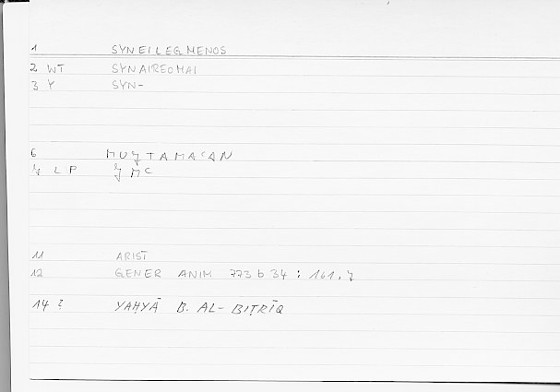 1 SYNEILEGMENOS
2 WT SYNAIREOMAI
3 Y SYN-
6 MUǦTAMAʿAN
ǧ L P ǦMʿ
11 ARIST
12 GENER ANIM 773 b 34 : 161,7
14 ? YAḤYĀ B. AL-BIṬRĪQ